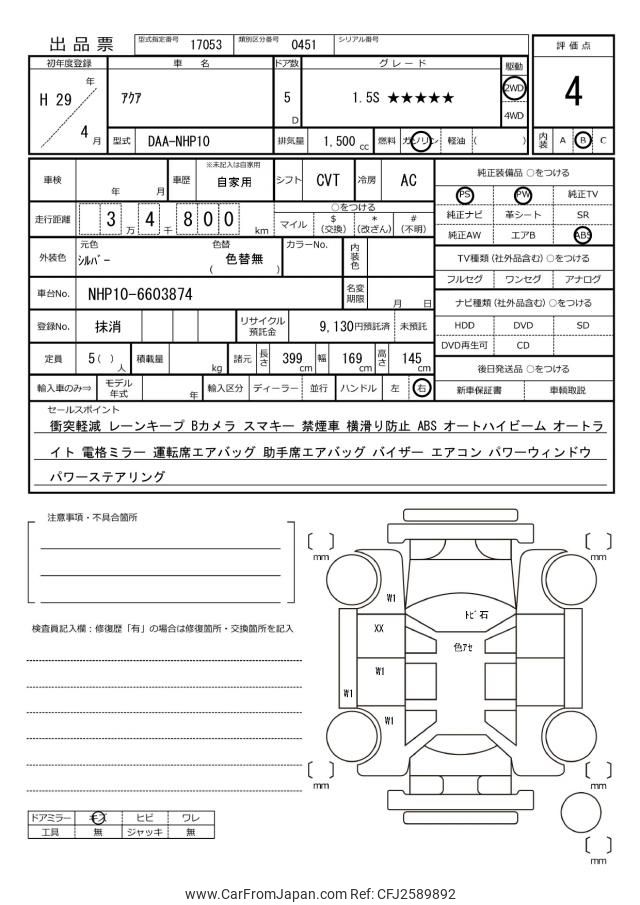 出品票
型式指定番号 17053 類別区分番号 0451 シリアル番号
評価点
4
内装 A B C
初年度登録 車名 ドア数 グレード 駆動
H 29 年 4 月
アクア 5 D 1.5S ★★★★★ 2WD 4WD
型式 DAA-NHP10 排気量 1,500 cc 燃料 ガソリン 軽油 ( )
車検 年 月 車歴 ※未記入は自家用 自家用 シフト CVT 冷房 AC
純正装備品 ○をつける
PS PW 純正TV
純正ナビ 革シート SR
純正AW エアB ABS
走行距離 3 万 4 千 8 0 0 km
○をつける
マイル $(交換) *(改ざん) #(不明)
外装色 元色 シルバー 色替 ( 色替無 ) カラーNo. 内装色
TV種類(社外品含む)○をつける
フルセグ ワンセグ アナログ
車台No. NHP10-6603874 名変期限 月 日
ナビ種類(社外品含む)○をつける
HDD DVD SD
DVD再生可 CD
登録No. 抹消 リサイクル預託金 9,130円預託済 未預託
定員 5 ( ) 人 積載量 kg 諸元 長さ 399 cm 幅 169 cm 高さ 145 cm
後日発送品 ○をつける
新車保証書 車輌取説
輸入車のみ⇒ モデル年式 年 輸入区分 ディーラー 並行 ハンドル 左 右
セールスポイント
衝突軽減 レーンキープ Bカメラ スマキー 禁煙車 横滑り防止 ABS オートハイビーム オートラ
イト 電格ミラー 運転席エアバッグ 助手席エアバッグ バイザー エアコン パワーウィンドウ
パワーステアリング
注意事項・不具合箇所
検査員記入欄：修復歴「有」の場合は修復箇所・交換箇所を記入
mm
mm
W1
トビ石
XX
色アセ
W1
W1
W1
mm
mm
mm
ドアミラー キズ ヒビ ワレ
工具 無 ジャッキ 無
www.CarFromJapan.com Ref: CFJ2589892